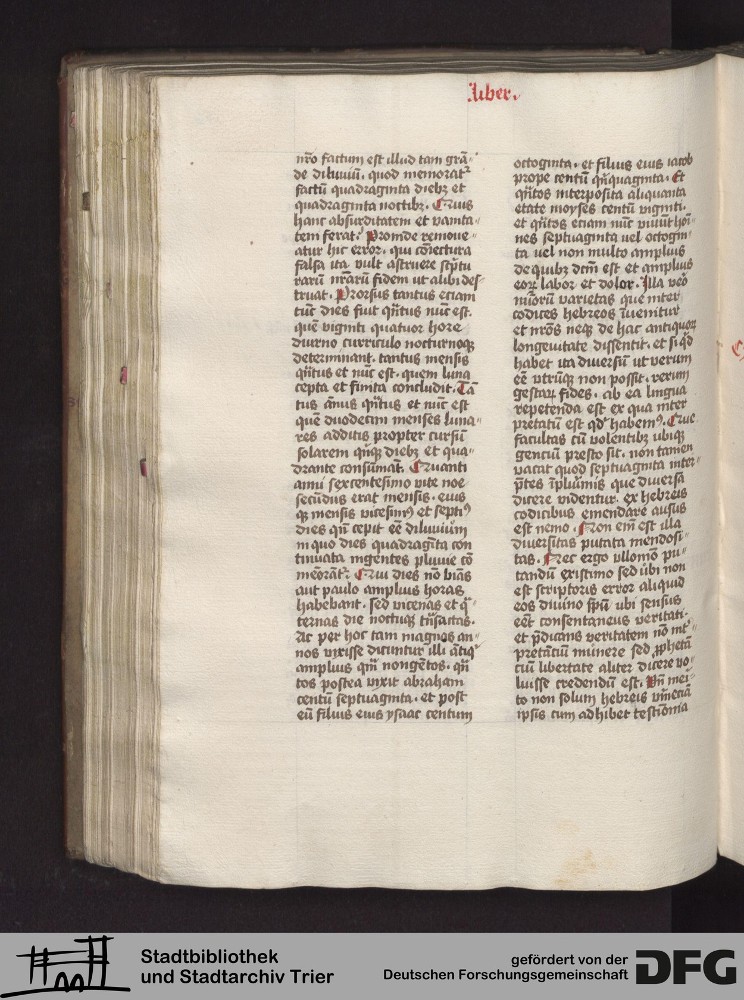 Liber.
nr̄o factum est illud tam grā-
de diluuiū. quod memorat᷑
factū quadraginta diebꝫ et
quadraginta noctibꝫ. Quis
hanc absurditatem et vanita-
tem ferat. Proinde remoue-
atur hic error. qui coniectura
falsa ita vult astruere scptu
rarū nr̄arū fidem ut alibi des-
truat. Prorsus tantus eciam
tūc dies fuit qn̄tus nūc est.
quē viginti quatuor hore
diurno curriculo nocturnoqꝫ
determinant. tantus mensis
qn̄tus et nūc est. quem luna
cepta et finita concludit. Tā
tus ānus qn̄tus et nūc est
quē duodecim menses luna-
res additis propter cursū
solarem qn̄qꝫ diebꝫ et qua-
drante consūmāt. Quanti
anni sexcentesimo vite noe
secūdus erat mensis. eius
qꝫ mensis vicesimꝰ et septiꝰ
dies qn̄ cepit eē diluuiūm
in quo dies quadragīta con
tinuata ingentes pluuie cō
meorāt᷑. Qui dies nō bīas
aut paulo amplius horas
habebant. sed vicenas et q̄-
ternas die noctuqꝫ trāsactas.
Ac per hoc tam magnos an-
nos vixisse dicuntur illi ātiq̄
amplius qm̄ nongētos. qn̄
tos postea vixit abraham
centū septuaginta. et post
eū filius eius ysaac centum
octoginta. et filius eius iacob
prope centū qn̄quaginta. Et
qn̄tos interposita aliquanta
etate moyses centū viginti.
et qn̄tos eciam nūc viuūt hoī-
nes septuaginta uel octogin-
ta uel non multo amplius
de quibꝫ dcm̄ est et amplius
eoꝝ labor et dolor. Illa vēo
nūorū varietas que inter
codices hebreos īuenitur
et nr̄os neqꝫ de hac antiquoꝝ
longeuitate dissentit. et si qd
habet ita diuersū ut verum
eē vtrūqꝫ non possit. rerum
gestaꝝ fides. ab ea lingua
repetenda est ex qua inter
pretatū est qd habemꝰ. Que
facultas cū volentibꝫ ubiqꝫ
genciū presto sit. non tamen
vacat quod septuaginta inter-
p̄tes īpluimis que diuersa
dicere videntur. ex hebreis
codicibus emendare ausus
est nemo. Non em̄ est illa
diuersitas putata mendosi-
tas. Nec ergo vllomō pu-
tandū existimo sed ubi non
est scriptoris error aliquid
eos diuino spū ubi sensus
eēt consentaneus veritati.
et p̄dicans veritatem nō int᷑-
pretāciū munere sed ꝓphetā
ciū libertate aliter dicere vo-
luisse credendū est. Vn̄ mei-
to non solum hebreis vm̄eciā
ipsis cum adhibet testiōnia
Stadtbibliothek
und Stadtarchiv Trier
gefördert von der
Deutschen Forschungsgemeinschaft
DFG